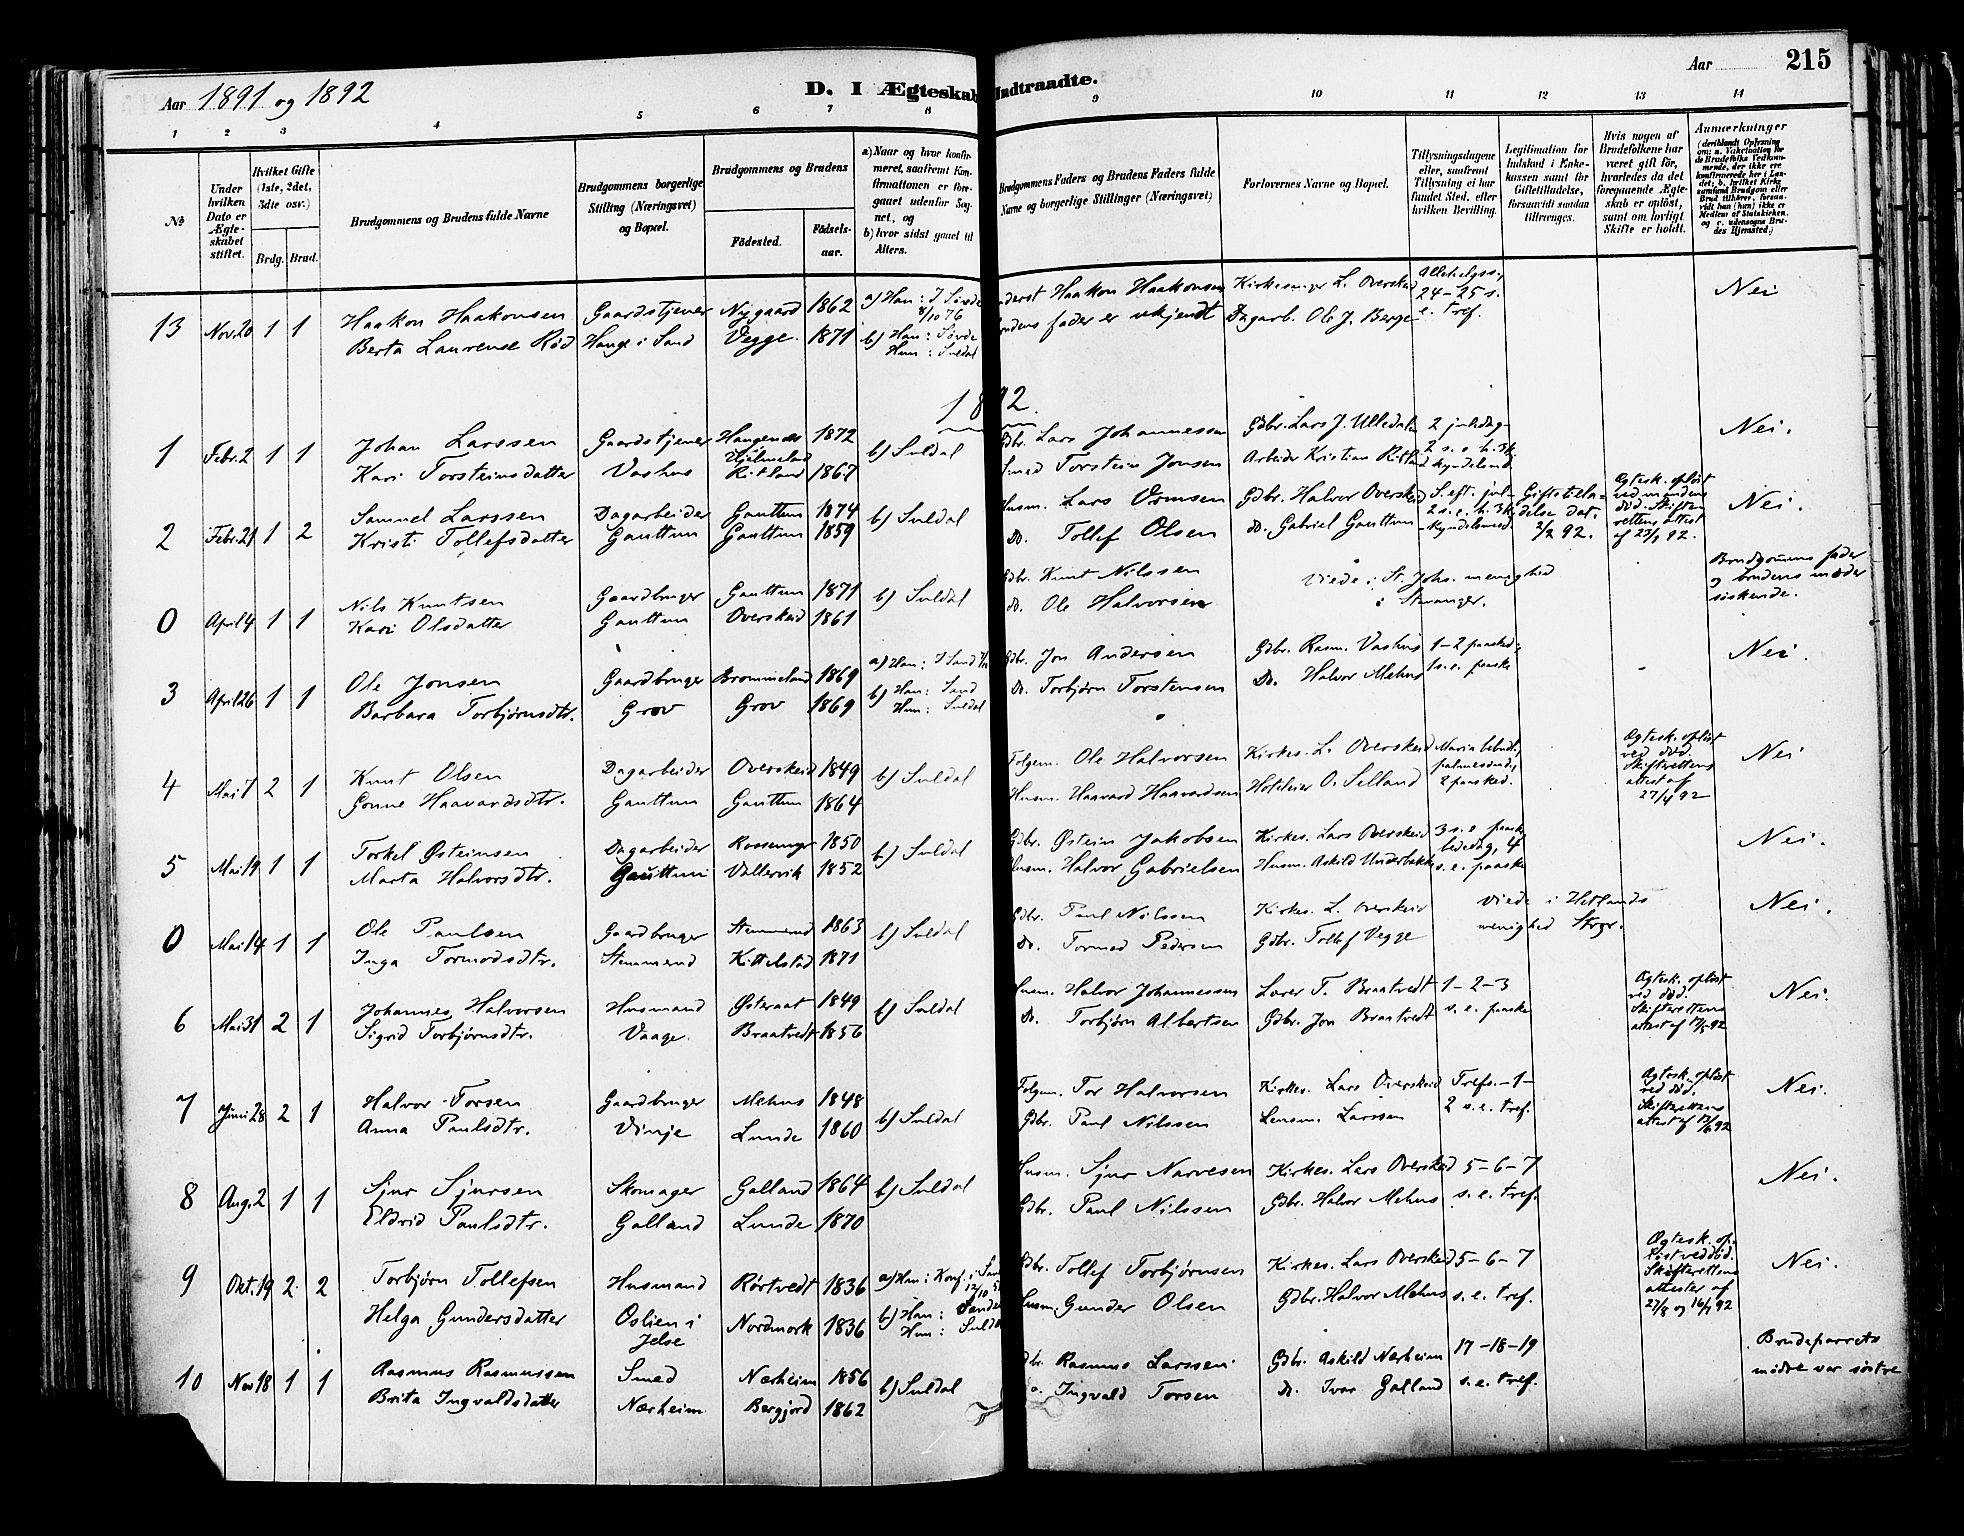 Aar 1891 og 1892
D. I Ægteskab Indtraadte.
Aar 215
1 2 3 4 5 6 7 8 9 10 11 12 13 14
№
Under hvilken Dato er Ægteskabet stiftet.
Hvilket Gifte (1ste, 2det, 3dte osv.)
Brdg. Brud.
Brudgommens og Brudens fulde Navne
Brudgommens borgerlige Stilling (Næringsvei) og Bopæl.
Brudgommens og Brudens
Födested.
Födselsaar.
a) Naar og hvor konfirmeret, saafremt Konfirmationen er foregaaet udenfor Sognet, og
b) hvor sidst gaaet til Alters.
Brudgommens Faders og Brudens Faders fulde Navne og borgerlige Stillinger (Næringsvei)
Forlovernes Navne og Bopæl.
Tillysningsdagene eller, saafremt Tillysning ei har fundet Sted, efter hvilken Bevilling.
Legitimation for Indskud i Enkekassen samt for Giftetilladelse, forsaavidt saadan tiltrænges.
Hvis nogen af Brudefolkene har været gift før, hvorledes da det foregaaende Ægteskab er oplöst, samt om lovligt Skifte er holdt.
Anmærkninger
13 Nov. 20 1 1 Haakon Haakonsen Gaardstjener Nygaard 1862 a) Han: I Søvde 8/10 76 Haakon Haakonsen Kirkesanger L. Overskeid 24-25 s. e. tref. Nei
Berta Laurense Rød Hauge i Sand Vegge 1871 b) Han: Søvde Hun: Suldal Brudens fader er ukjendt Dagarb. Ole J. Berge
1892.
1 Febr. 2 1 1 Johan Larssen Gaardstjener Haugenæs Hjelmeland 1872 b) Suldal Gdbr. Lars Johannessen Gdbr. Lars J. Ulledalen 2 juledag- Nei.
Kari Torsteinsdatter Vashus Ritland 1867 Smed Torstein Jonsen Arbeider Kristian Ritland 2 s. e. h. 3k. kyndelsmd
2 Febr. 21 1 2 Samuel Larssen Dagarbeider Gauttun 1874 b) Suldal Husm. Lars Ormsen Gdbr. Halvor Overskeid S. eft. jul- Giftetilladelse dat. 3/2 92. Ægtesk. opløst ved mandens død. Skifterettens attest af 27/1 92. Nei.
Kristi Tollefsdatter Gauttun Gauttun 1859 Do. Tollef Olsen do. Gabriel Gauttun 2 s. e. h. 3k. kyndelsmd
0 April 4 1 1 Nils Knutsen Gaardbruger Gauttun 1871 b) Suldal Gdbr. Knut Nilssen Viede i St. Johs. menighed i Stavanger. Brudgommens fader og brudens moder søskende.
Kari Olsdatter Gauttun Overskeid 1861 do. Ole Halvorsen
3 April 26 1 1 Ole Jonsen Gaardbruger Brommeland 1869 a) Han: I Sand b) Han: Sand Hun: Suldal Gdbr. Jon Andersen Gdbr. Rasm. Vashus 1-2 paasked, Nei.
Barbara Torbjørnsdtr. Grov Grov 1869 Do. Torbjørn Torstensen Do. Halvor Mehus 1 s. e. paaske
4 Mai 7 2 1 Knut Olsen Dagarbeider Overskeid 1849 b) Suldal Folgem. Ole Halvorsen Kirkes. L. Overskeid Maria bebud., palmesønd, 2 paasked. Ægtesk. opløst ved død. Skifterettens attest af 27/4 92 Nei
Gonne Haavardsdtr. Gauttun Gauttun 1864 Husm. Haavard Haavardsen Hoteleier O. Selland
5 Mai 19 1 1 Torkel Østeinsen Dagarbeider 1850 b) Suldal Gdbr. Østein Jakobsen Kirkes. Lars Overskeid 3 s. e. paaske, bededag, 4 s. e. paaske Nei.
Marta Halvorsdtr. Gauttun Vallervik 1852 Husm. Halvor Gabrielsen Husm. Askild Underbakke
0 Mai 14 1 1 Ole Paulsen Gaardbruger Stemmend 1863 b) Suldal Gdbr. Paul Nilssen Kirkes. L. Overskeid Viede i Hetlands menighed Stvgr. Nei.
Inga Tormodsdtr. Stemmend Kittelstad 1871 Do. Tormod Pedersen Gdbr. Tollef Vegge
6 Mai 31 2 1 Johannes Halvorsen Husmand Østeraat 1849 b) Suldal Husm. Halvor Johannessen Lærer T. Braatvedt 1-2-3 s. e. paaske Ægtesk. opløst ved død. Skifterettens attest af 17/5 92 Nei.
Sigrid Torbjørnsdtr. Vaage Braatvedt 1856 Do. Torbjørn Albertsen Gdbr. Jon Braatvedt
7 Juni 28 2 1 Halvor Torsen Gaardbruger Mehus 1848 b) Suldal Folgem. Tor Halvorsen Kirkes. Lars Overskeid Trefs.-1- 2 s. e. tref. Ægtesk. opløst ved død. Skifterettens attest af 13/6 92 Nei.
Anna Paulsdtr. Vinje Lunde 1860 Gdbr. Paul Nilssen Lensm. Larssen
8 Aug. 2 1 1 Sjur Sjursen Skomager Galland 1864 b) Suldal Husm. Sjur Narvesen Kirkes. Lars Overskeid 5-6-7 s. e. tref. Nei.
Eldrid Paulsdtr. Galland Lunde 1870 Gdbr. Paul Nilssen Gdbr. Halvor Mehus
9 Okt. 19 2 2 Torbjørn Tollefsen Husmand Rørtvedt 1836 a) Han: Konf. i Sand Gdbr. Tollef Torbjørnsen Kirkes. Lars Overskeid 5-6-7 s. e. tref. Ægtesk. opløst ved død. Skifterettens attester af 27/8 og 16/9 92 Nei.
Helga Gundersdatter Oslien i Jelse Nordmork 1836 b) Han: Hun: Suldal Husm. Gunder Olsen Gdbr. Halvor Mehus
10 Nov. 18 1 1 Rasmus Rasmussen Smed Nærheim 1856 b) Suldal Gdbr. Rasmus Larssen Gdbr. Askild Nærheim 17-18-19 s. e. tref. Brudeparrets mødre var søstre
Brita Ingvaldsdatter Nærheim Bergjord 1862 Do. Ingvald Torsen Do. Ivar Galland